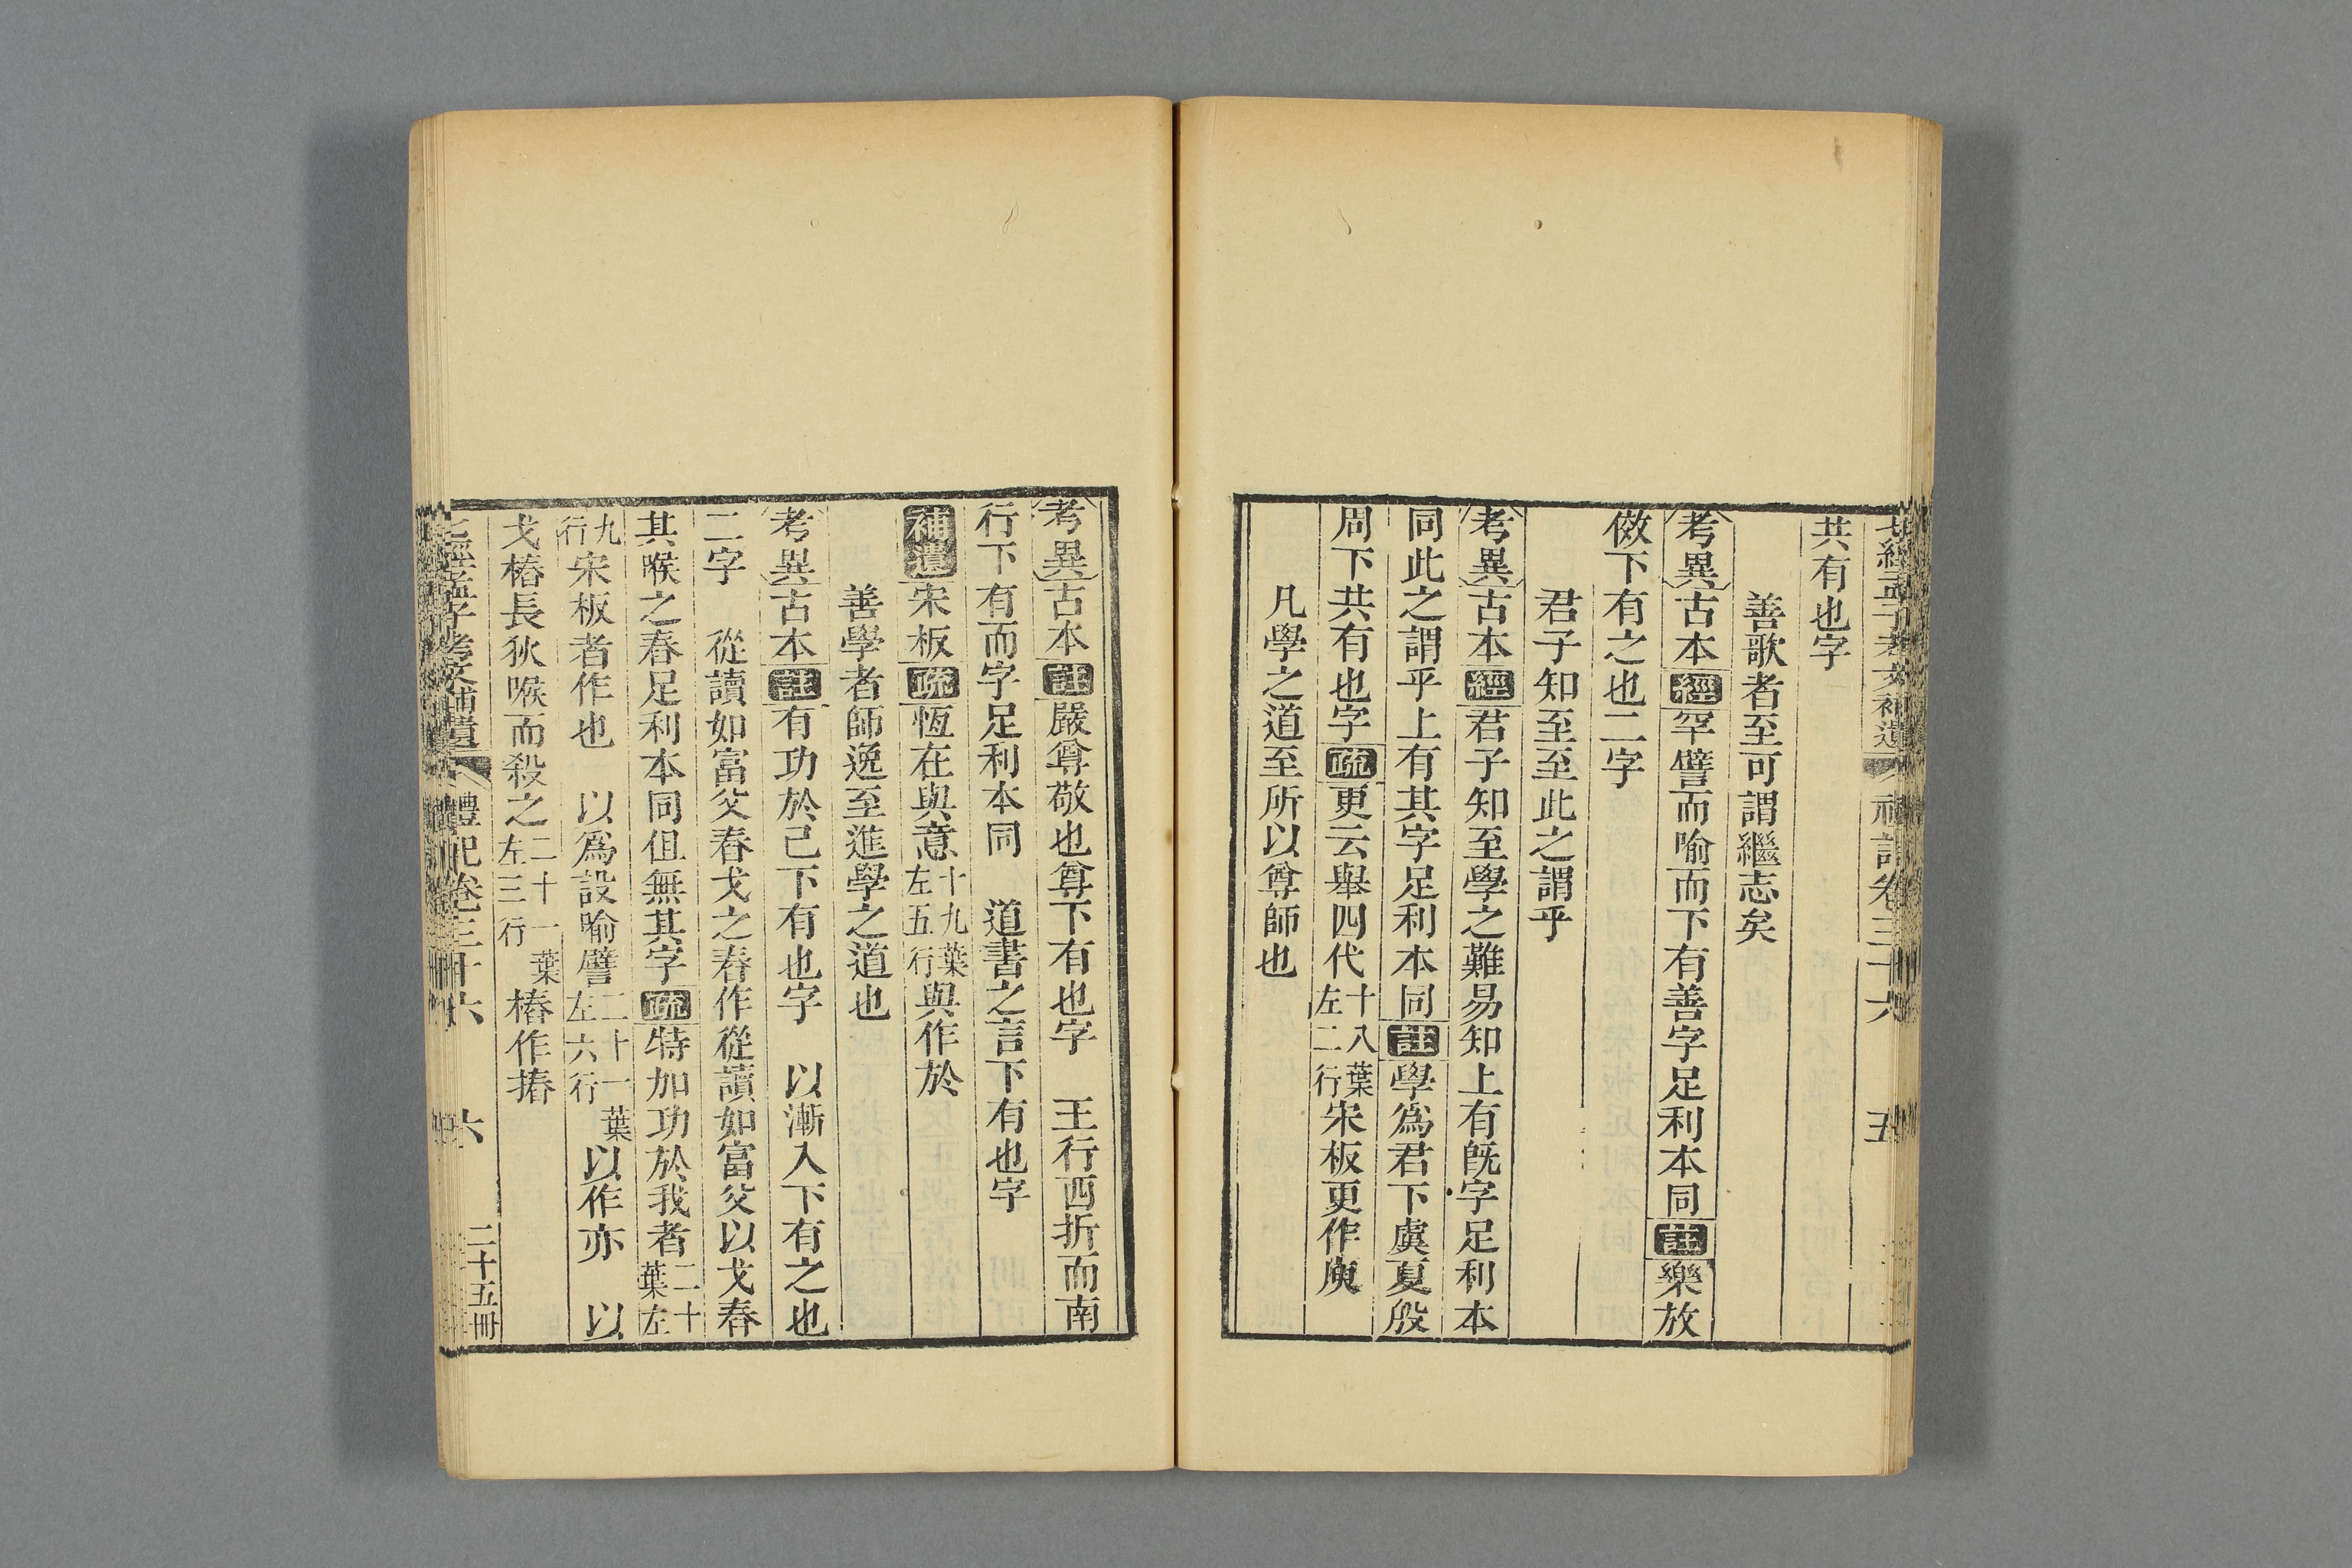 七經孟子考文補遺 禮記卷三十六 五
共有也字
善歌者至可謂繼志矣
考異古本經罕譬而喻而下有善字足利本同註樂放
傚下有之也二字
君子知至至此之謂乎
考異古本經君子知至學之難易知上有旣字足利本
同此之謂乎上有其字足利本同註學爲君下虞夏殷
周下共有也字疏更云舉四代十八葉左二行宋板更作庾
凡學之道至所以尊師也
考異古本註嚴尊敬也尊下有也字 王行西折而南
行下有而字足利本同 道書之言下有也字
補遺宋板疏恆在與意十九葉左五行與作於
善學者師逸至進學之道也
考異古本註有功於己下有也字 以漸入下有之也
二字 從讀如富父舂戈之舂作從讀如富父以戈舂
其喉之舂足利本同但無其字疏特加功於我者二十葉左
九行宋板者作也 以爲設喻譬二十一葉左六行以作亦 以
戈樁長狄喉而殺之二十一葉左三行樁作摏
七經孟子考文補遺 禮記卷三十六 六 二十五冊